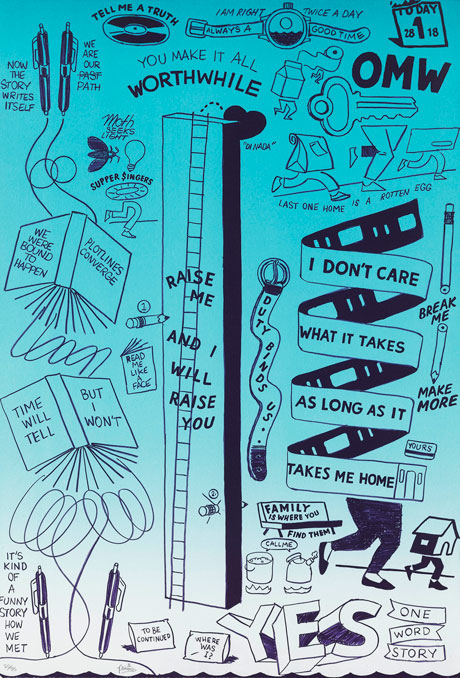 TELL ME A TRUTH
I AM RIGHT TWICE A DAY
ALWAYS A GOOD TIME
TODAY
28 1 18
WE
ARE
OUR
PAST
PATH
NOW
THE
STORY
WRITES
ITSELF
YOU MAKE IT ALL
WORTHWHILE
OMW
MOTH
SEEKS
LIGHT
SUPPER SINGERS
"DI NADA"
LAST ONE HOME IS A ROTTEN EGG
WE
WERE
BOUND
TO
HAPPEN
PLOTLINES
CONVERGE
RAISE
ME
AND I
WILL
RAISE
YOU
1
READ
ME
LIKE
A
FACE
DUTY BINDS US
I DON'T CARE
WHAT IT TAKES
AS LONG AS IT
TAKES ME HOME
BREAK
ME
MAKE
MORE
YOURS
TIME
WILL
TELL
BUT
I
WON'T
2
FAMILY
IS WHERE YOU
FIND THEM
CALL ME
IT'S
KIND
OF A
FUNNY
STORY
HOW
WE
MET
TO BE
CONTINUED
WHERE
WAS
I?
YES
ONE
WORD
STORY